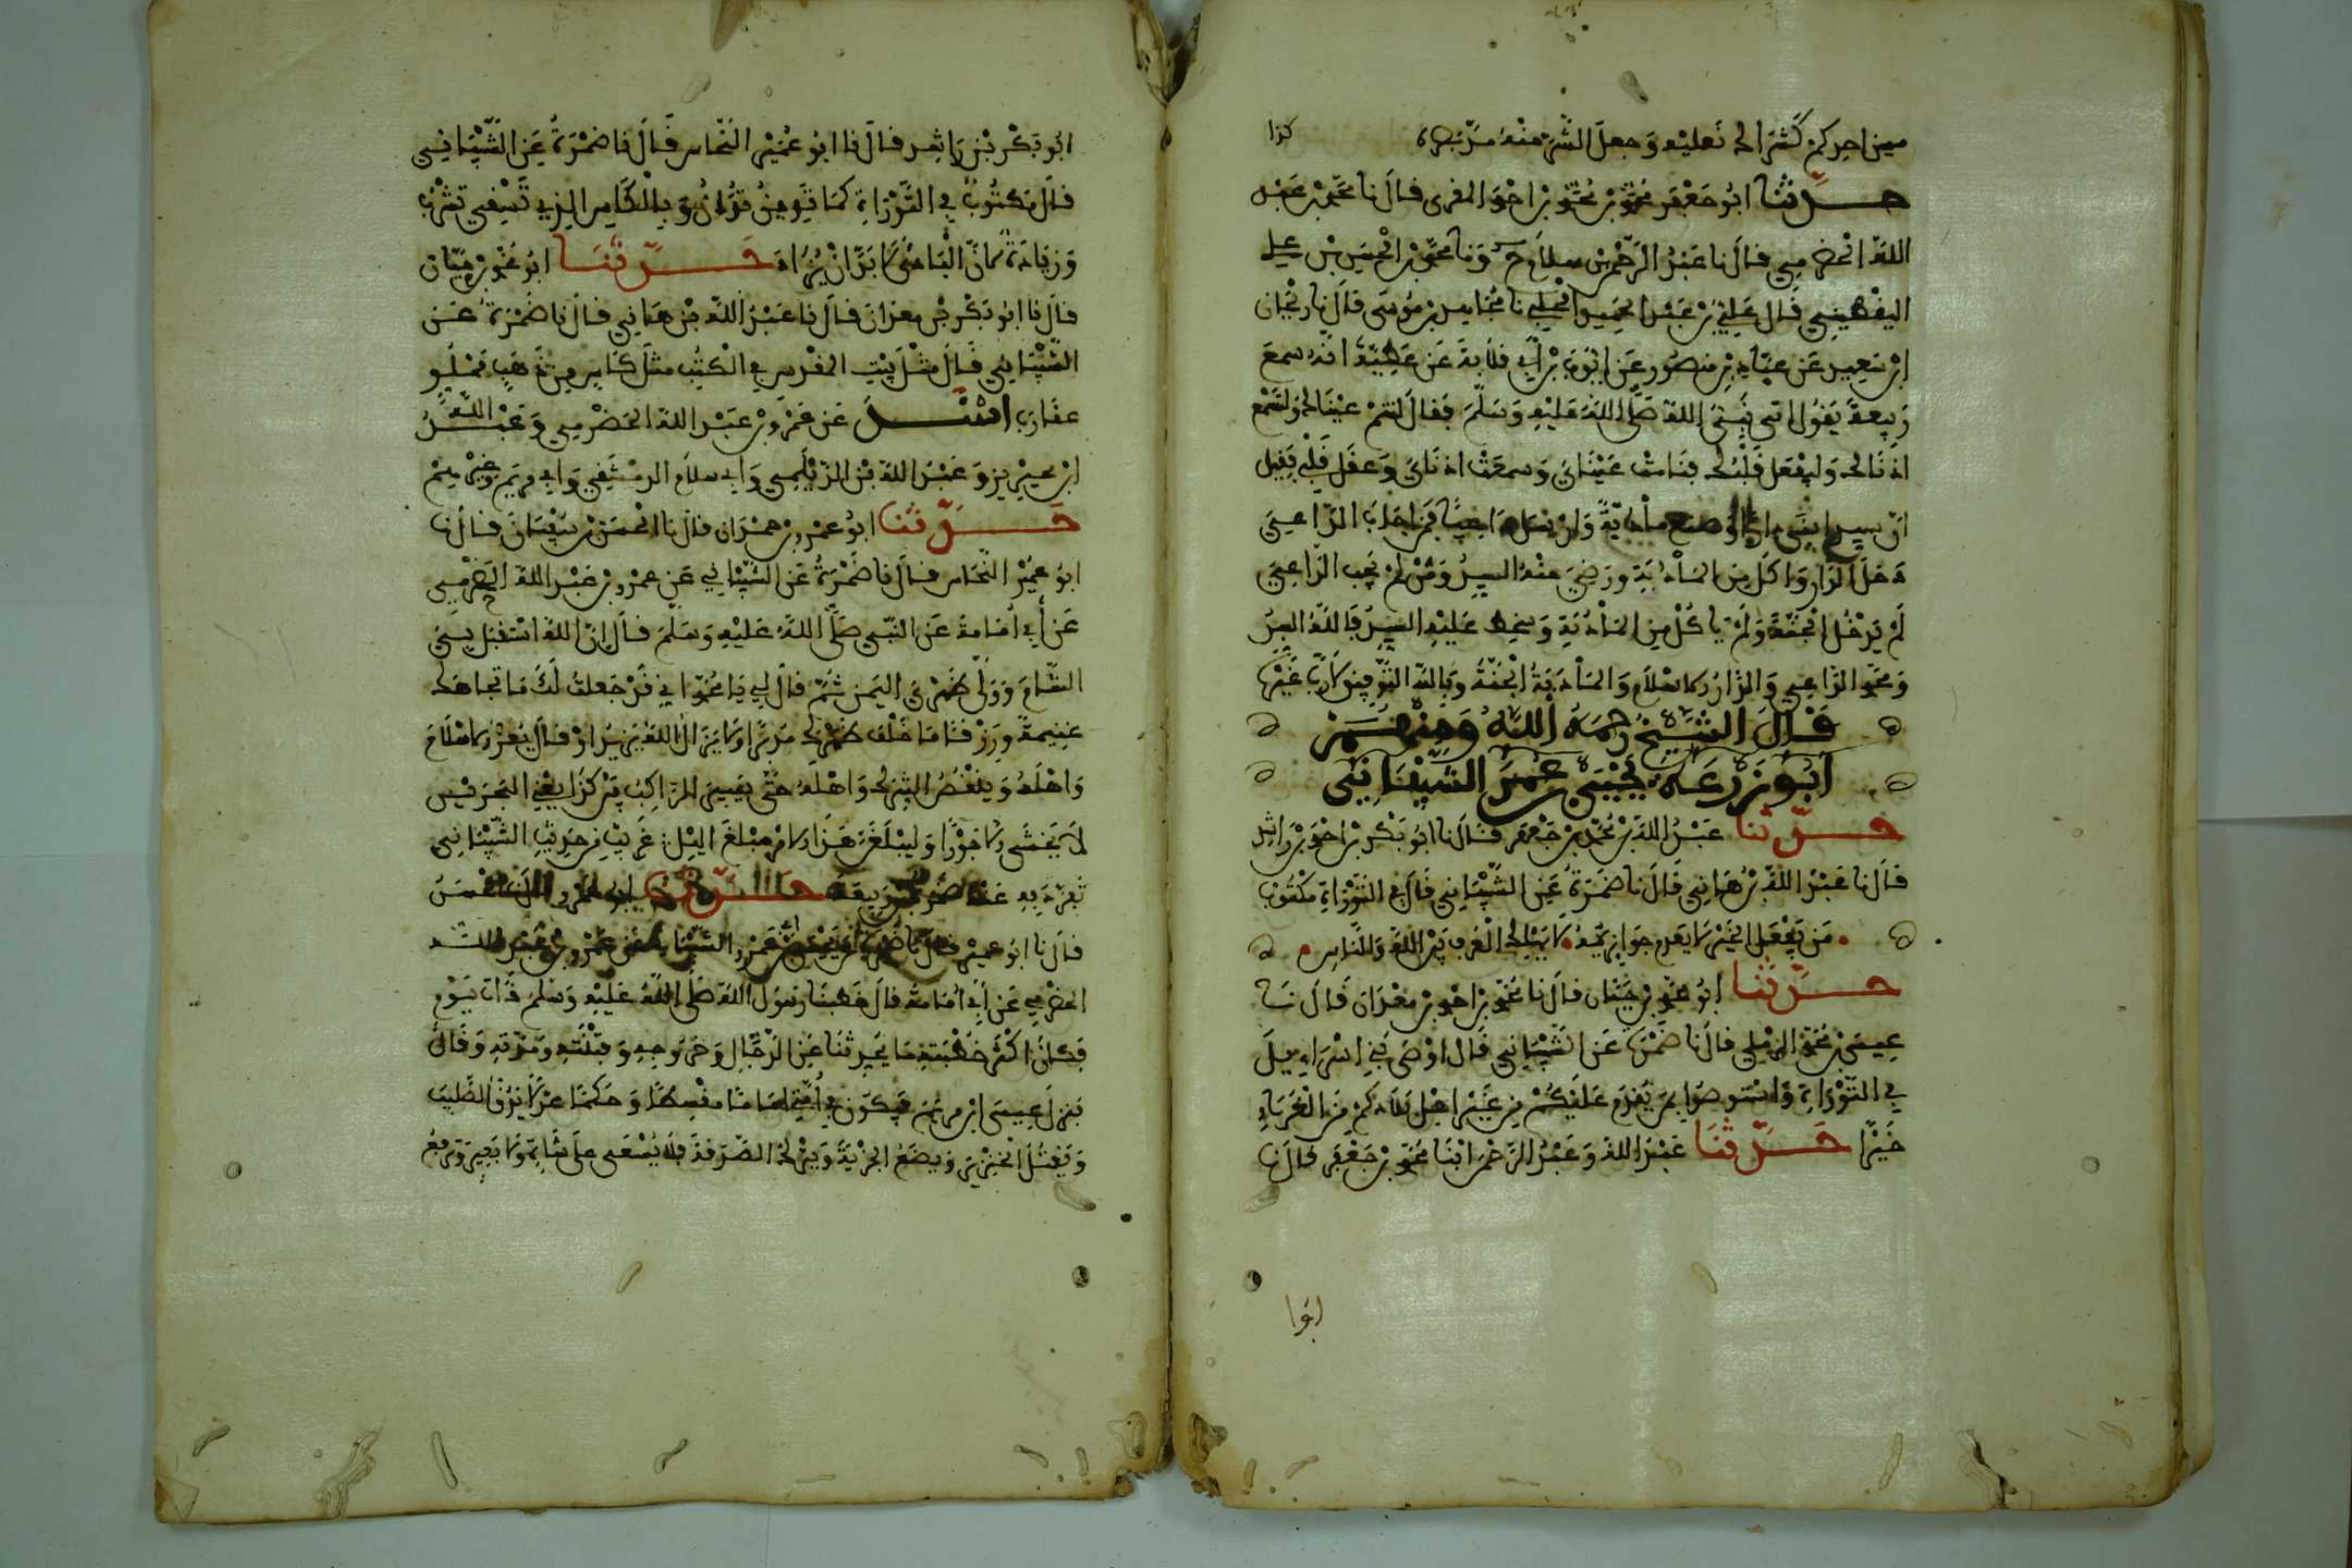 من احدكم كشراك نعليه وجعل الشر منه مد بصره كذا
حدثنا ابو جعفر محمد بن محمد بن احمد المقرى قال نا محمد بن عبد
الله الحضرمي قال نا عبد الرحمن بن سلام ح ونا محمد بن الحسين بن علي
اليقطيني قال علي بن عبد الحميد نا مجاهد بن موسى قال نا ريحان
ابن سعيد عن عباد بن منصور عن ايوب بن أبي قلابة عن عطية انه سمع
ربيعة يقول اتى نبي الله صلى الله عليه وسلم فقال لتنم عينك ولتسمع
اذناك وليعقل قلبك فنامت عيناي وسمعت اذناي وعقل قلبي فقيل
ان سيد صنع مأدبة وارسل داعيا فمن اجاب الداعي
دخل الدار واكل من المأدبة ورضي عنه السيد ومن لم يجب الداعي
لم يدخل الجنة ولم يأكل من المأدبة وسخط عليه السيد فالله السيد
ومحمد الداعي والدار الاسلام والمأدبة الجنة وبالله التوفيق لا رب غيره
قال الشيخ رحمه الله ومنهم
ابو زرعة يحيى بن عمر الشيباني
حدثنا عبد الله بن محمد بن جعفر قال نا ابو بكر بن احمد بن راشد
قال نا عبد الله بن هاني قال نا ضمرة عن الشيباني قال في التوراة مكتوب
من يفعل الخير لا يعدم جوازيه لا يهلك العرف بين الله والناس
حدثنا ابو محمد بن حيان قال نا محمد بن احمد بن معدان قال نا
عيسى بن محمد الرملي قال نا ضمرة عن الشيباني قال اوصى بني اسرايل
في التوراة واستوصوا بمن يقدم عليكم من غير اهل بلادكم من الغرباء
خيرا حدثنا عبد الله وعبد الرحمن ابنا محمد بن جعفر قال نا
ابوا
ابو بكر بن راشد قال نا ابو عمير النحاس قال نا ضمرة عن الشيباني
قال مكتوب في التوراة كما تدين تدان وبالكاس الذي تسقي تشرب
وزيادة لان البادئ لا بد ان يزاد حدثنا ابو محمد بن حيان
قال نا ابو بكر بن معدان قال نا عبد الله بن هاني قال نا ضمرة عن
الشيباني قال مثل بيت المقدس في الكتب مثل كاس من ذهب مملو
عقارب اسند عن عمرو بن عبد الله الحضرمي وعبد الله
ابن محيريز وعبد الله بن الديلمي وابي سلام الدمشقي وابي مريم وغيرهم
حدثنا ابو عمرو بن حمدان قال نا الحسن بن سفيان قال نا
ابو عمير النحاس قال نا ضمرة عن الشيباني عن عمرو بن عبد الله الحضرمي
عن أبي أمامة عن النبي صلى الله عليه وسلم قال إن الله استقبل بي
الشام وولى ظهرى اليمن ثم قال لي يا محمد اني قد جعلت لك ما تجاهك
غنيمة ورزقا وما خلف ظهرك مددا ولا يزال الله يزيد او قال يعز الاسلام
واهله وينقص الشرك واهله حتى يسير الراكب بين كذا يعني البحرين
لا يخشى الا جورا وليبلغن هذا الامر مبلغ الليل غريب من حديث الشيباني
تفرد به عنه ضمرة بن ربيعة حدثنا ابو عمرو الحسن
قال نا ابو عمير قال نا ضمرة الشيباني عن عمرو بن عبد الله
الحضرمي عن أبي أمامة قال خطبنا رسول الله صلى الله عليه وسلم ذات يوم
فكان اكثر خطبته ما يحدثنا عن الدجال وخروجه وقتله ومدته وقال
ينزل عيسى ابن مريم فيكون في أمتي اماما مقسطا وحكما عدلا يدق الصليب
ويقتل الخنزير ويضع الجزية ويترك الصدقة فلا يسعى على شاة ولا بعير وترفع